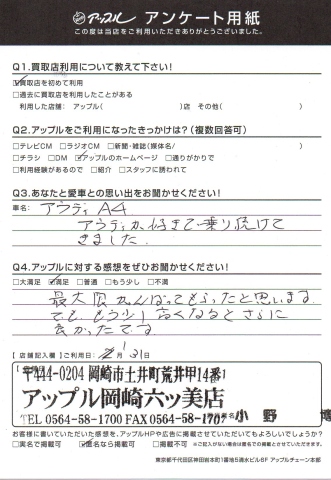 アップル アンケート用紙
この度は当店をご利用いただきありがとうございました。
Q1.買取店利用について教えて下さい!
☑買取店を初めて利用
□過去に買取店を利用したことがある
利用した店舗: アップル( )店 その他( )
Q2.アップルをご利用になったきっかけは?(複数回答可)
□テレビCM □ラジオCM □新聞・雑誌(媒体名/ )
□チラシ □DM ☑アップルのホームページ □通りがかりで
□利用経験があるので □紹介 □スタッフに誘われて
Q3.あなたと愛車との思い出をお聞かせください!
車名: アウディA4
アウディが好きで乗り続けて
きました.
Q4.アップルに対する感想をぜひお聞かせください!
□大満足 ☑満足 □普通 □もう少し □不満
最大限がんばってもらったと思います.
でも、もう少し高くなるとさらに
良かったです.
【 店舗記入欄 】ご利用日: 月31日
〒444-0204 岡崎市土井町荒井甲14番1
アップル岡崎六ッ美店
TEL 0564-58-1700 FAX 0564-58-
小野 博
お客様に書いていただいた感想を、アップルHPや広告に掲載させていただいてもよろしいでしょうか?
□実名で掲載可 ☑匿名なら掲載可 □掲載不可
東京都千代田区神田岩本町1番地5清水ビル6F アップルチェーン本部